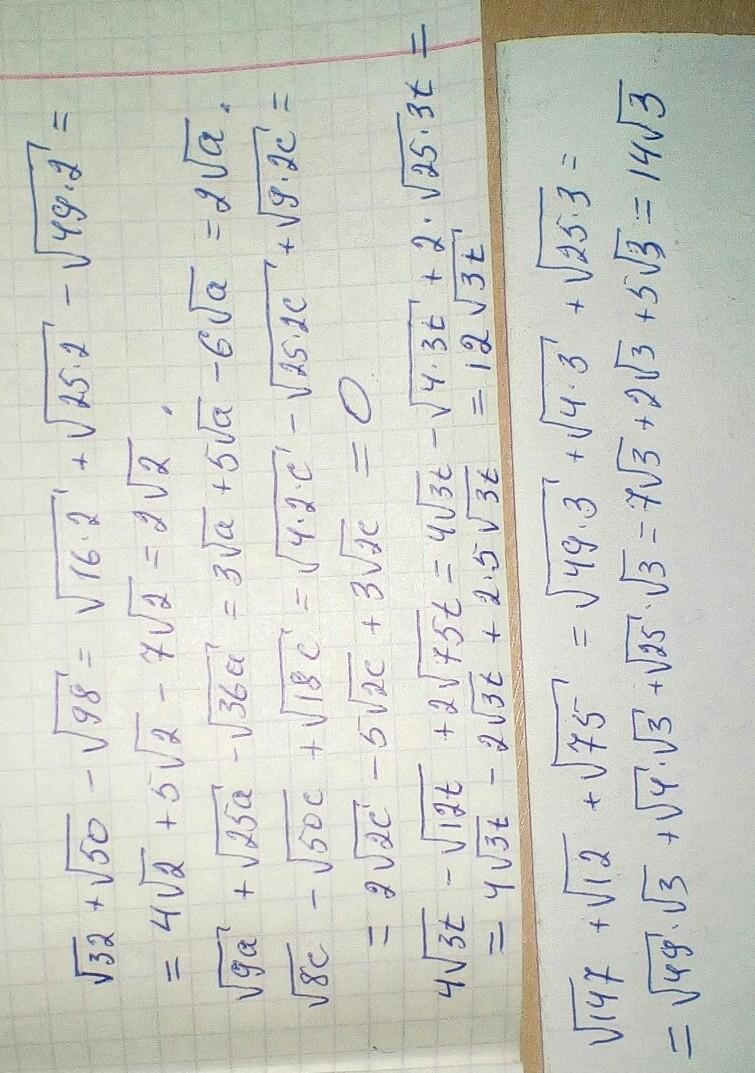 √32 + √50 - √98 = √16·2 + √25·2 - √49·2 =
= 4√2 + 5√2 - 7√2 = 2√2.
√9a + √25a - √36a = 3√a + 5√a - 6√a = 2√a.
√8c - √50c + √18c = √4·2·c - √25·2c + √9·2c =
= 2√2c - 5√2c + 3√2c = 0
4√3t - √12t + 2√75t = 4√3t - √4·3t + 2·√25·3t =
= 4√3t - 2√3t + 2·5√3t = 12√3t
√147 + √12 + √75 = √49·3 + √4·3 + √25·3 =
= √49·√3 + √4·√3 + √25·√3 = 7√3 + 2√3 + 5√3 = 14√3